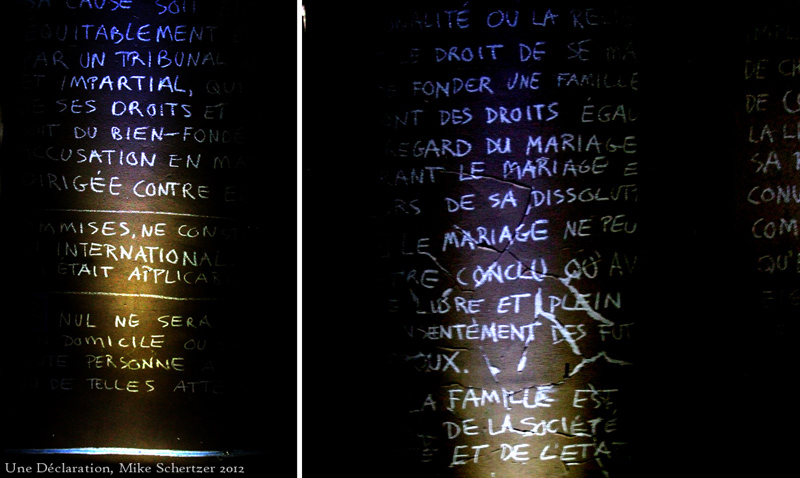 SA CAUSE SOIT
EQUITABLEMENT
PAR UN TRIBUNAL
ET IMPARTIAL, QUI
DE SES DROITS ET
DU BIEN-FONDÉ
ACCUSATION EN MA
DIRIGÉE CONTRE E
OMMISES, NE CONST
INTERNATIONAL
ÉTAIT APPLICAB
NUL NE SERA
DOMICILE OU
PERSONNE A
DE TELLES ATTE
Une Déclaration, Mike Schertzer 2012
NALITÉ OU LA RELIG
LE DROIT DE SE MA
FONDER UNE FAMILLE
ONT DES DROITS ÉGAU
REGARD DU MARIAGE
RANT LE MARIAGE E
RS DE SA DISSOLUTI
LE MARIAGE NE PEU
TRE CONCLU QU'AV
LIBRE ET PLEIN
NSENTEMENT DES FUT
OUX.
LA FAMILLE EST
DE LA SOCIÉTÉ
ET DE L'ETA
DE CH
DE CO
LA LI
SA R
CONV
COM
QU'E